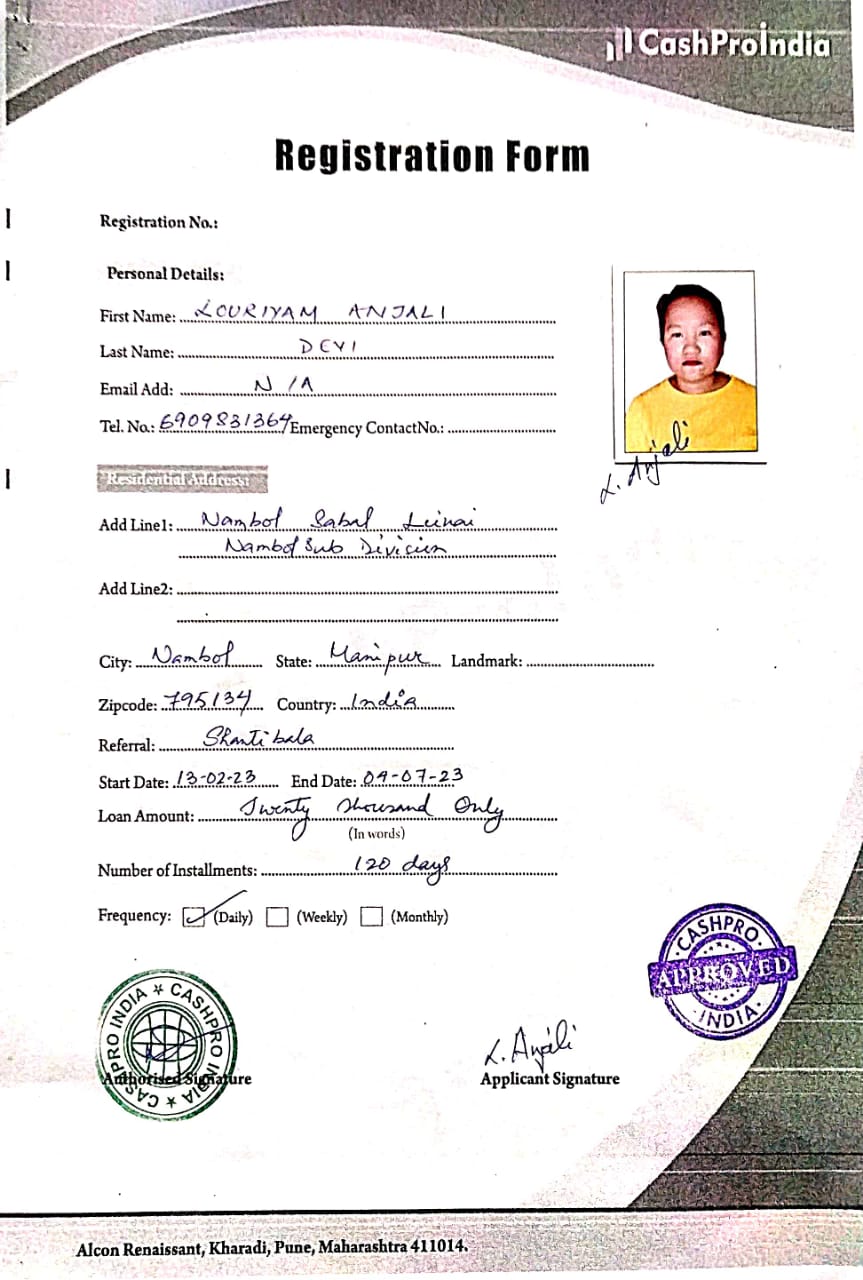 CashProIndia
Registration Form
Registration No.:
Personal Details:
First Name: LOURIYAM ANJALI
Last Name: DEVI
Email Add: N/A
Tel. No.: 6909831364 Emergency ContactNo.:
L. Anjali
Residential Address:
Add Line1: Nambol Sabal Leinai
Nambol Sub Division
Add Line2:
City: Nambol State: Manipur Landmark:
Zipcode: 795134 Country: India
Referral: Shantibala
Start Date: 13-02-23 End Date: 09-07-23
Loan Amount: Twenty Thousand Only
(In words)
Number of Installments: 120 days
Frequency: (Daily) (Weekly) (Monthly)
CASHPRO
APPROVED
INDIA
CASHPRO INDIA ★ CASHPRO INDIA ★
L. Anjali
Authorised Signature Applicant Signature
Alcon Renaissant, Kharadi, Pune, Maharashtra 411014.